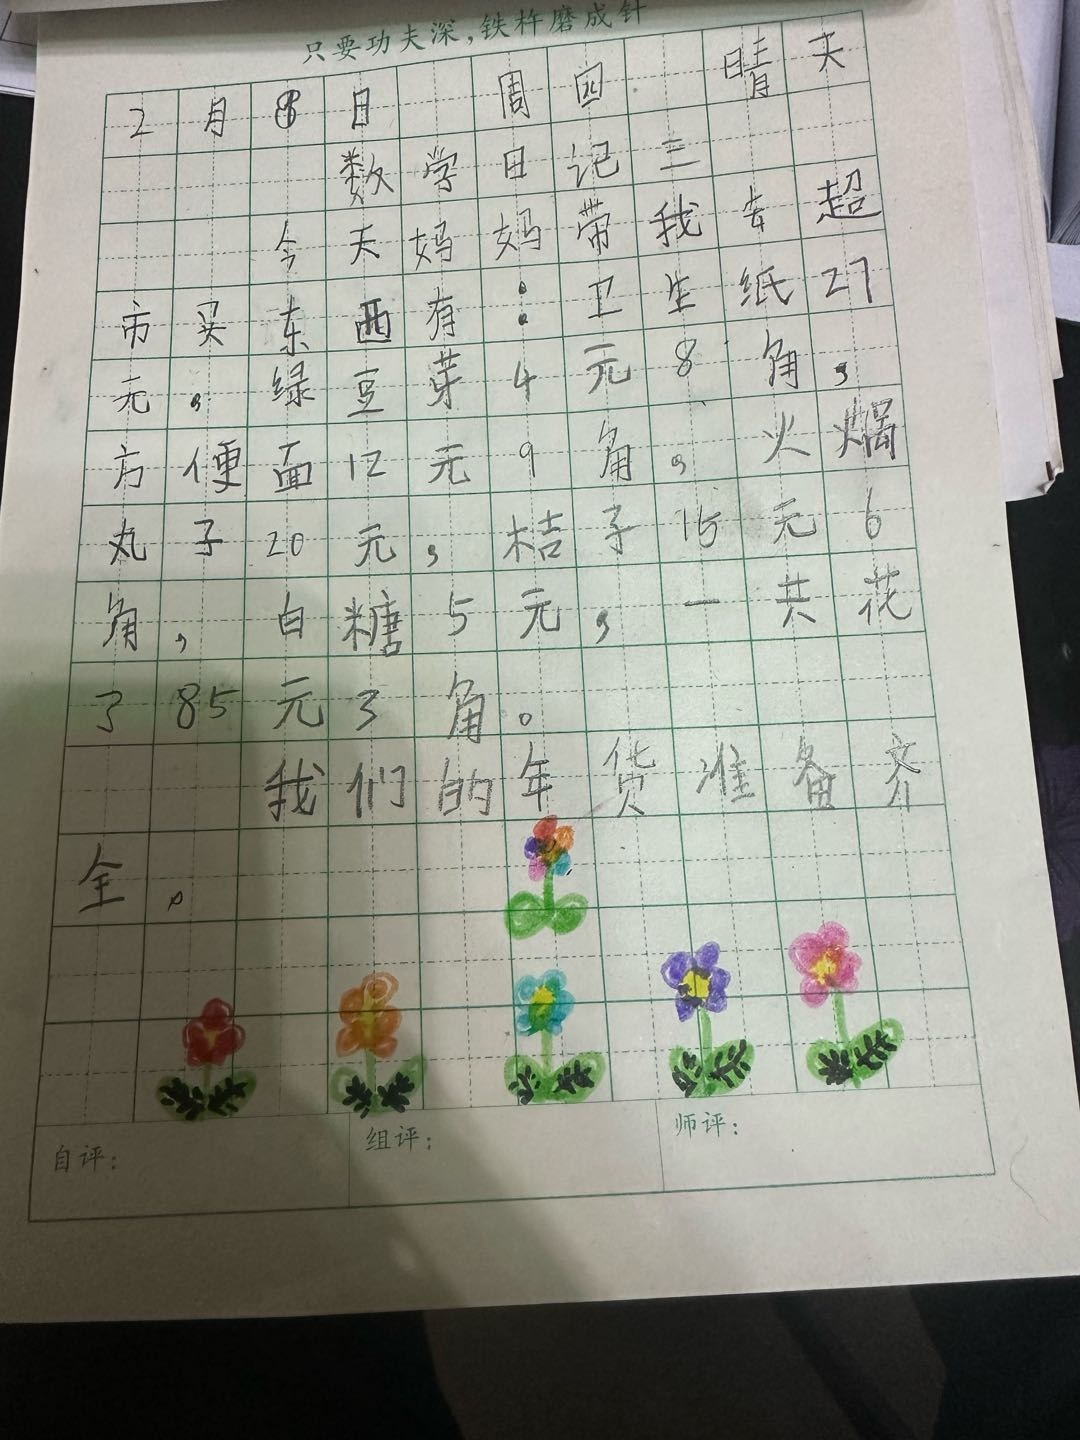 只要功夫深,铁杵磨成针
2月8日 周四 晴天
数学日记三
今天妈妈带我去超
市买东西有：卫生纸27
元，绿豆芽4元8角，
方便面12元9角，火焗
丸子20元，桔子15元6
角，白糖5元，一共花
了85元3角。
我们的年货准备齐
全。
自评： 组评： 师评：